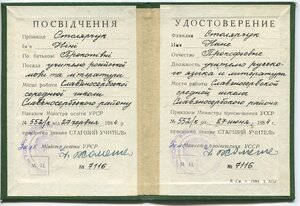 ПОСВІДЧЕННЯ
Прізвище Столярчук
Ім'я Ніні
По батькові Прокопівні
Посада учителю російської
мови та літератури
Місце роботи Славяносербська
середня школа
Славяносербського району
Наказом Міністра освіти УРСР
№ 552/к від 27 червня 1984 р.
присвоєно звання СТАРШИЙ УЧИТЕЛЬ
Міністр освіти УРСР
М. П.
№ 7116
УДОСТОВЕРЕНИЕ
Фамилия Столярчук
Имя Нине
Отчество Прокофьевне
Должность учителю русского
языка и литературы
Место работы Славяносербской
средней школы
Славяносербского района
Приказом Министра просвещения УССР
№ 552/к от 27 июня 1984 г.
присвоено звание СТАРШИЙ УЧИТЕЛЬ
Министр просвещения УССР
М. П.
№ 7116